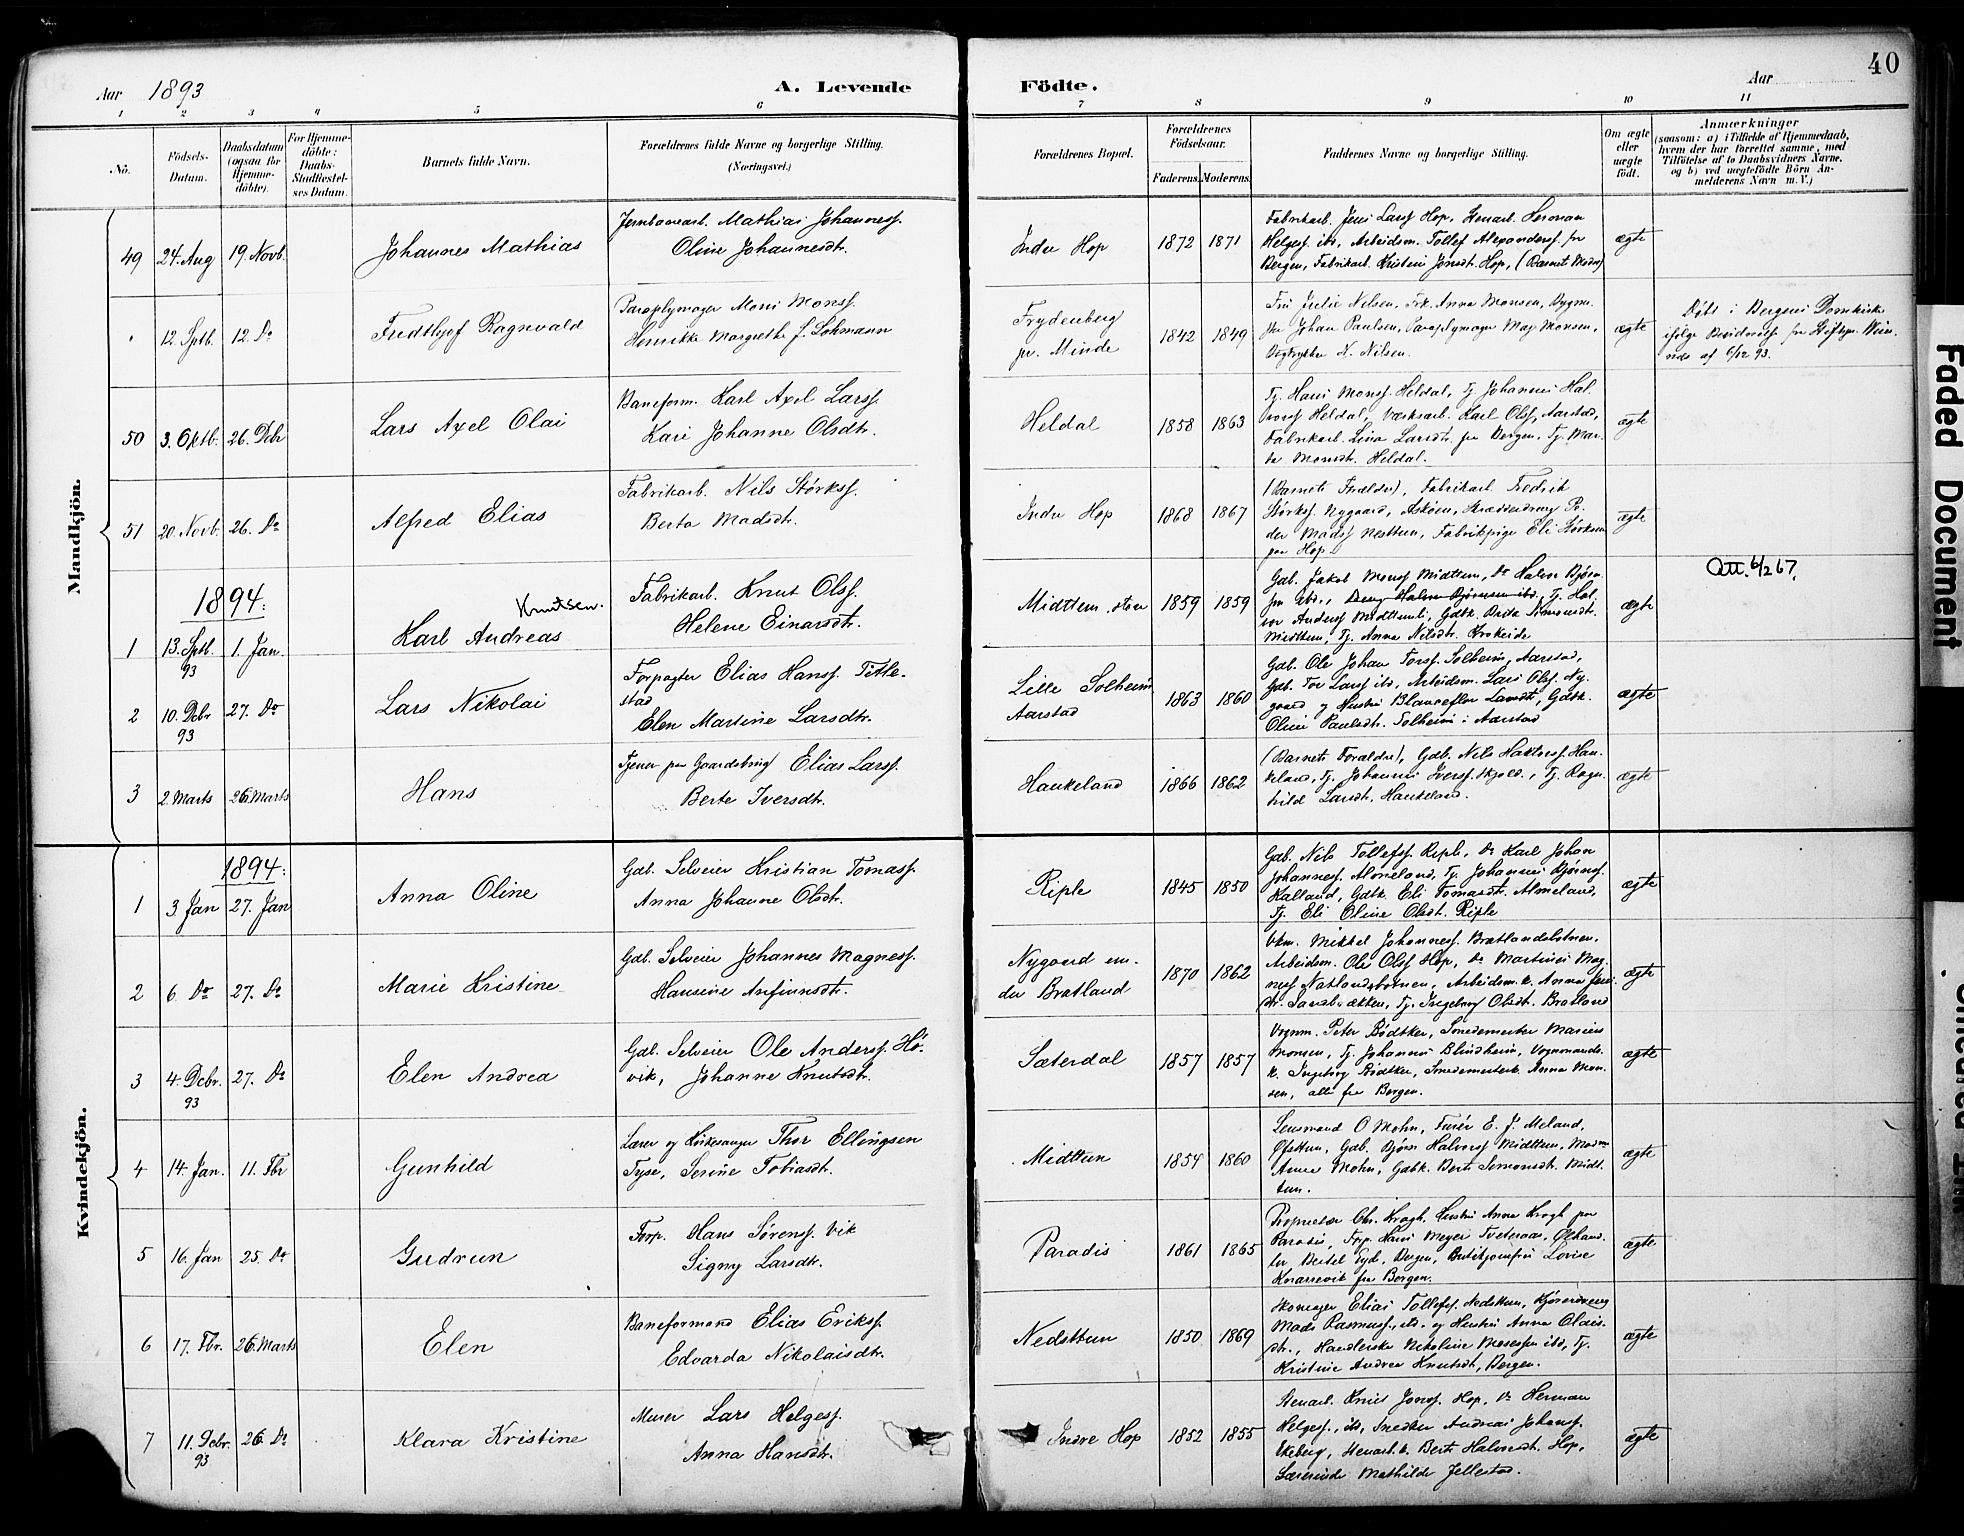 40
Aar 1893 A. Levende Födte. Aar
1 2 3 4 5 6 7 8 9 10 11
No.
Födsels-
Datum.
Daabsdatum
(ogsaa for
Hjemme-
döbte).
For Hjemme-
döbte:
Daabs-
Stadfæstel-
ses Datum.
Barnets fulde Navn.
Forældrenes fulde Navne og borgerlige Stilling.
(Næringsvei.)
Forældrenes Bopæl.
Forældrenes
Födselsaar.
Faderens. Moderens.
Faddernes Navne og borgerlige Stilling.
Om ægte
eller
uægte
födt.
Anmærkninger
(saasom: a) i Tilfælde af Hjemmedaab,
hvem der har forrettet samme, med
Tilföielse af to Daabsvidners Navne.
og b) ved uægtefödte Börn An-
melderens Navn m. V.)
Mandkjön.
49 24. Aug 19. Novb. Johannes Mathias
Jernbanearb. Mathias Johanness.
Oline Johannesdtr.
Indre Hop 1872 1871
Fabrikarb. Jens Larss Hop, Stenarb. Herman
Helgess. ibd, Arbeidsm. Tollef Alexanderss. fra
Bergen, Fabrikarb. Kristen Jonsdtr. Hop, (Barnets Moder)
ægte
" 12. Sptb. 12. Do Fredthjof Ragnvald
Paraplymager Mons Monss.
Henrikke Margrethe J. Lohmann
Frydenberg
pr. Minde
1842 1849
Fru Julie Nilsen, Frk. Anna Monsen, Bygm.
Johan Paulsen, Paraplymager Mag. Monsen,
Bogtrykker N. Nilsen.
ægte
Døbt i Bergens Domkirke
ifølge fra Stiftspr.
af 6/12 93.
50 3. Oktb. 26. Dcbr Lars Axel Olai
Baneform. Karl Axel Larss.
Kari Johanne Olsdtr.
Heldal 1858 1863
Tj. Hans Monss. Heldal, Tj. Johannes Hal-
vorss Heldal, Værksarb. Karl Olss, Aarstad,
Fabrikarb. Lina Larsdtr. fra Bergen, Tj. Mar-
ta Monsdtr. Heldal.
ægte
51 20. Novb. 26. Do Alfred Elias
Fabrikarb. Nils Størkss.
Berta Madsdtr.
Indre Hop 1868 1867
(Barnets Forældre), Fabrikarb. Fredrik
Størkss. Nygaard, Askøen, Skræddersvend Pe-
der Madss Nesttun, Fabrikpige Eli Størksen
paa Hop.
ægte
1894:
1 13. Sptb. 93 1. Jan. Karl Andreas Knutsen.
Fabrikarb. Knut Olss.
Helene Einarsdtr.
Midttun store 1859 1859
Gdb. Jakob Monss Midttun, Do Halvor Bjørn-
ibd., Halvor Bjørnsen ibd, Tj. Hal-
vor Anderss Midttun, Gdbk. Brita Simonsdtr.
Midttun, Tj. Anna Nilsdtr. Krokeide
ægte
Att. 6/2 67.
2 10. Dcbr 93 27. Do Lars Nikolai
Forpagter Elias Hanss. Title-
stad
Elen Martine Larsdtr.
Lille Solheim
Aarstad
1863 1860
Gdb. Ole Johan Torss. Solheim, Aarstad,
Gdb. Tor Larss ibd, Arbeidsm. Lars Olss. Ny-
gaard og Hustru Blanceflor Larsdtr, Gdbk.
Oline Paulsdtr. Solheim i Aarstad
ægte
3 2. Marts 26. Marts Hans
Tjener paa Gaardsbrug Elias Larss.
Berte Iversdtr.
Haukeland 1866 1862
(Barnets Forældre), Gdb. Nils Haktorss. Hau-
keland, Tj. Johannes Iverss. Skjold, Tj. Ragn-
hild Larsdtr. Haukeland.
ægte
Kvindekjön.
1894:
1 3. Jan 27. Jan Anna Oline
Gdb. Selveier Kristian Tomass.
Anna Johanne Olsdtr.
Riple 1845 1850
Gdb. Nils Tollefss. Riple, Do Karl Johan
Johanness. Almeland, Tj. Johannes Bjørnss.
Kalland, Gdbk. Eli Tomasdtr. Almeland,
Tj. Eli Oline Olsdtr. Riple
ægte
2 6. Do 27. Do Marie Kristine
Gdb. Selveier Johannes Magness.
Hansine Anfinnsdtr.
Nygaard un-
der Bratland
1870 1862
Mikkel Johanness. Bratlandsbotnen,
Arbeidsm. Ole Olss Hop, Do Martinus Mag-
ness Natlandsbotnen, Arbeidsm. k. Anna Jens-
dtr. Sandbrækken, Tj. Ingeborg Olsdtr. Bratland
ægte
3 4. Dcbr. 93 27. Do Elen Andrea
Gdb. Selveier Ole Anderss. Hø-
vik, Johanne Knutsdtr.
Sæterdal 1857 1857
Vognm. Peter Bødtker, Smedemester Marius
Monsen, Tj. Johannes Blindheim, Vognmands-
k. Ingeborg Bødtker, Smedemesterk. Anna Mon-
sen, alle fra Bergen.
ægte
4 14. Jan. 11. Fbr Gunhild
Lærer og Kirkesanger Thor Ellingsen
Tyse, Serine Tobiasdtr.
Midttun 1854 1860
Lensmand O Mohn, Furér E. J. Meland,
Øfsttun, Gdb. Bjørn Halvorss Midttun, Madm
Anna Mohn, Gdbk. Berte Simonsdtr. Midt-
tun.
ægte
5 16. Jan 25. Do Gudrun
Forp. Hans Sørenss. Vik
Signy Larsdtr.
Paradis 1861 1865
Proprietær Chr. Krogh, Hustru Anna Krogh paa
Paradis, Forp. Hans Meyer Tveteraas, Ølhand-
ler Bertel Eyd, Bergen, Butikjomfru Lovise
Knarrevik fra Bergen.
ægte
6 17. Fbr. 26. Marts Elen
Baneformand Elias Erikss.
Edvarda Nikolaisdtr.
Nedsttun 1850 1869
Skomager Elias Tollefss. Nedsttun, Kjøresvend
Mads Rasmuss., ibd. og Hustru Anna Olais-
dtr., Handlerske Nikoline Mosessen ibd, Tj.
Kristine Andrea Knutsdtr, Bergen.
ægte
7 11. Dcbr. 93 26. Do Klara Kristine
Murer Lars Helgess.
Anna Hansdtr.
Indre Hop 1852 1855
Stenarb. Knut Jonss. Hop, Do Herman
Helgess., ibd, Snedker Andreas Johanss.
Ekeberg, Stenarb. k. Berte Halvorsdtr. Hop,
Lærerinde Mathilde Jellestad.
ægte
Faded Document